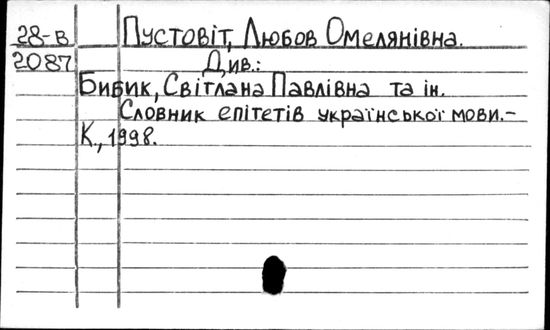 28-В Пустовіт, Любов Омелянівна.
2087 Див.:
Бибик, Світлана Павлівна та ін.
Словник епітетів української мови.-
К., 1998.